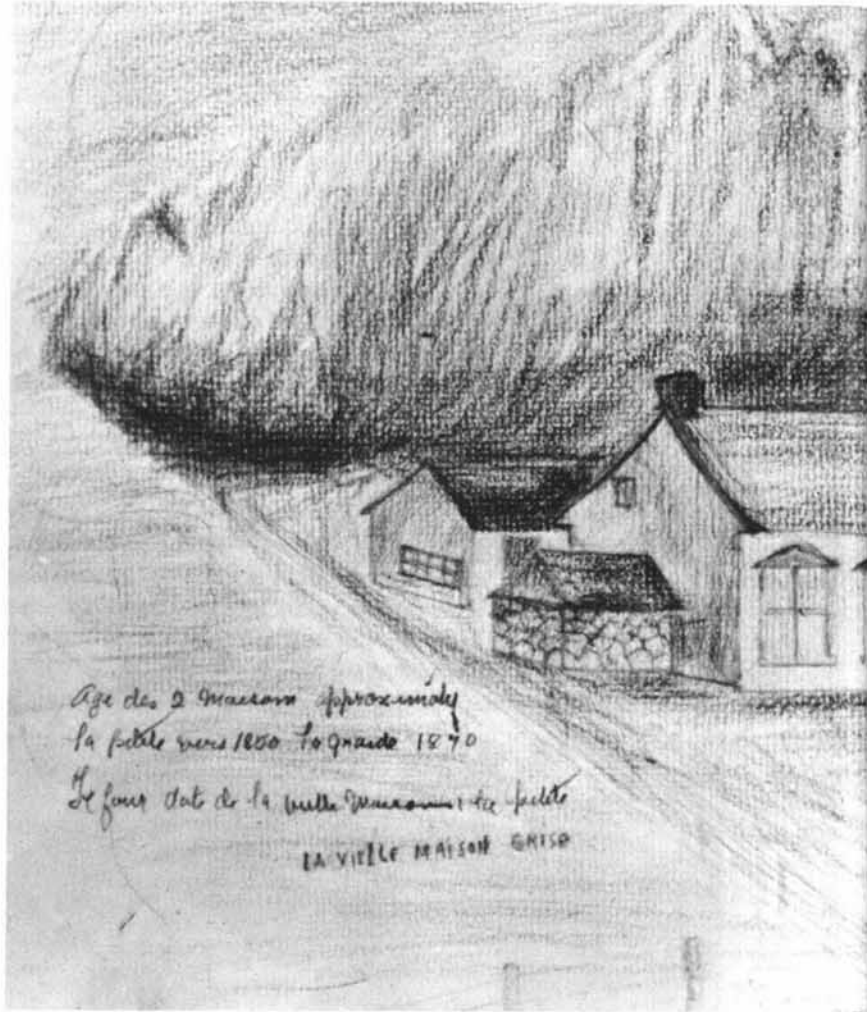 Age des 2 maisons
la petite vers la grande 1870
Le four date de la vielle maison : la petite
LA VIELLE MAISON GRISE